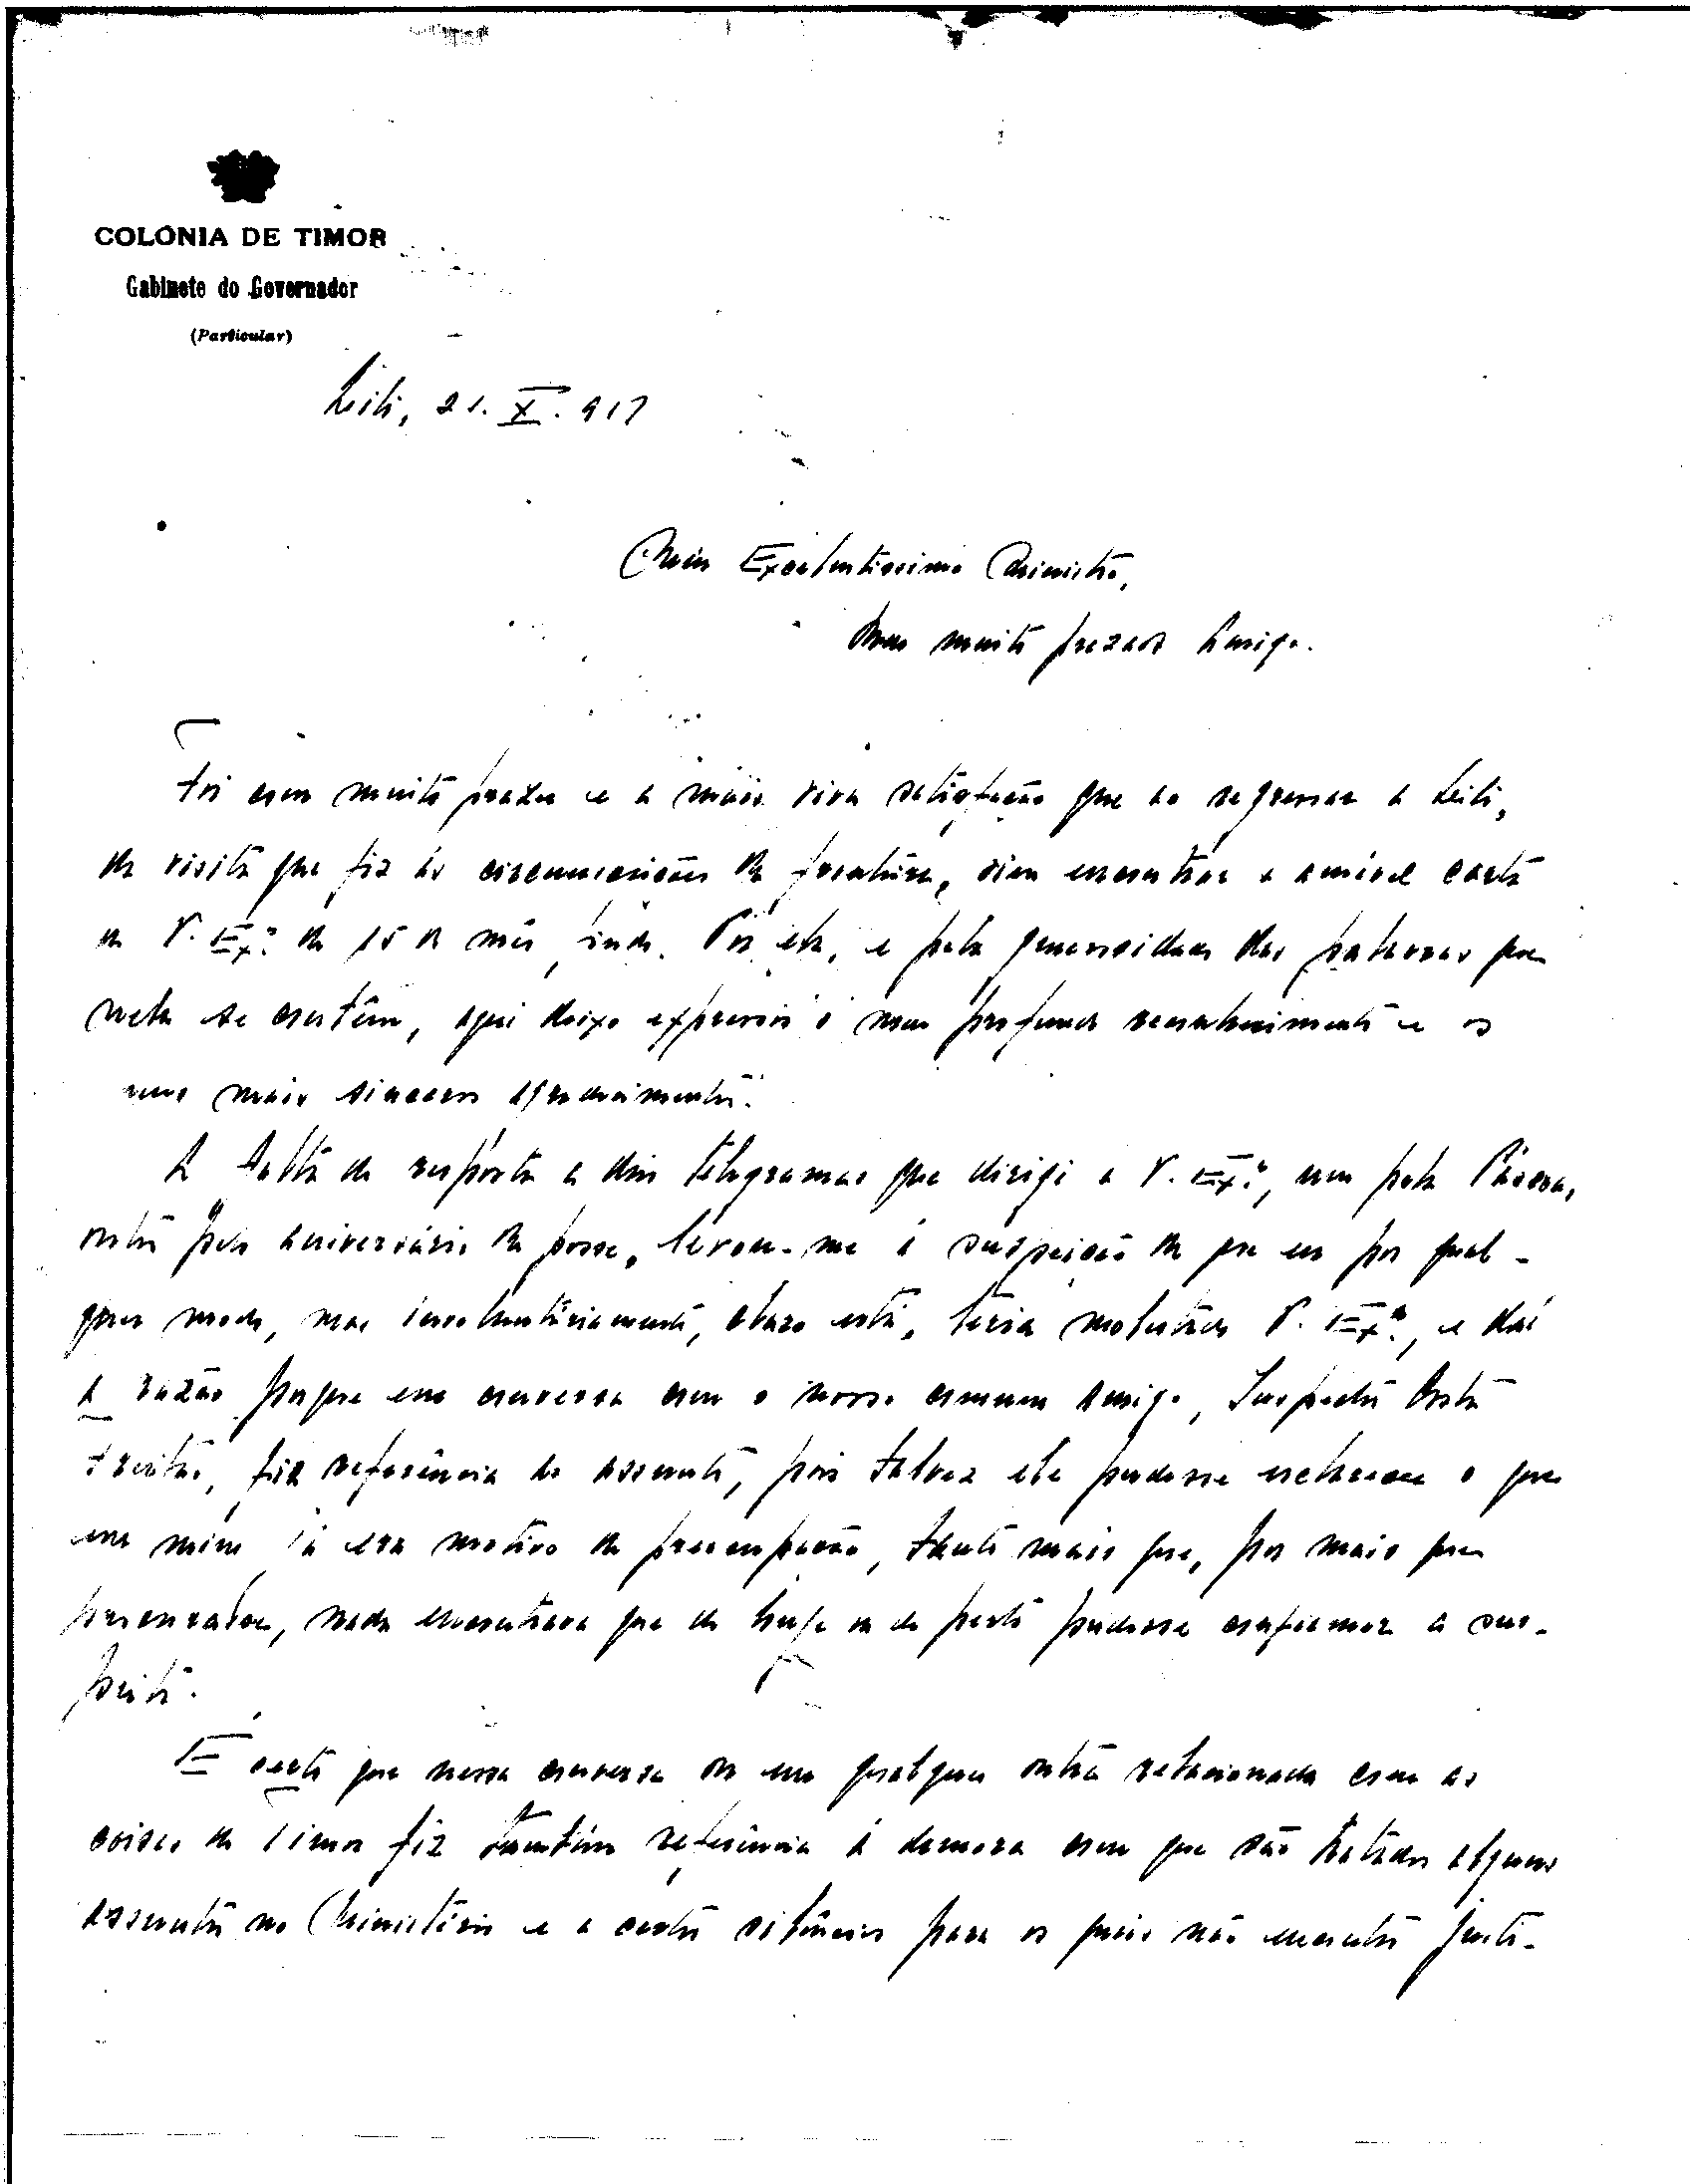 COLÓNIA DE TIMOR
Gabinete do Governador
(Particular)
Dili, 21. X. 917
Meu Excelentissimo Ministro,
Meu muito prezado Amigo.
Foi com muito prazer e a mais viva satisfação que ao regressar a Dili,
da visita que fiz ás circunscrições da fronteira, vim encontrar a amável carta
de V. Exª de 15 de mês findo. Por ela, e pela generosidade das palavras que
nela se contêm, aqui deixo expresso o meu profundo reconhecimento e os
meus mais sinceros agradecimentos.
A falta de resposta a dois telegramas que dirigi a V. Exª, um pela Páscoa,
outro pelo aniversário da posse, levou-me á suspeição de que eu por qual-
quer modo, mas involuntáriamente, claro está, teria molestado V. Exª, e daí
a razão porque em conversa com o nosso comum amigo, Inspector Costa
Freitas, fiz referência ao assunto, pois talvez ele pudesse esclarecer o que
em mim já era motivo de preocupação, tanto mais que, por mais que
procurasse, nada encontrava que de longe ou de perto pudesse confirmar a sus-
peita.
É certo que nessa conversa ou em qualquer outra relacionada com as
coisas de Timor fiz também referência á demora com que são tratados alguns
assuntos no Ministério e a certos silêncios para os quais não encontro justi-